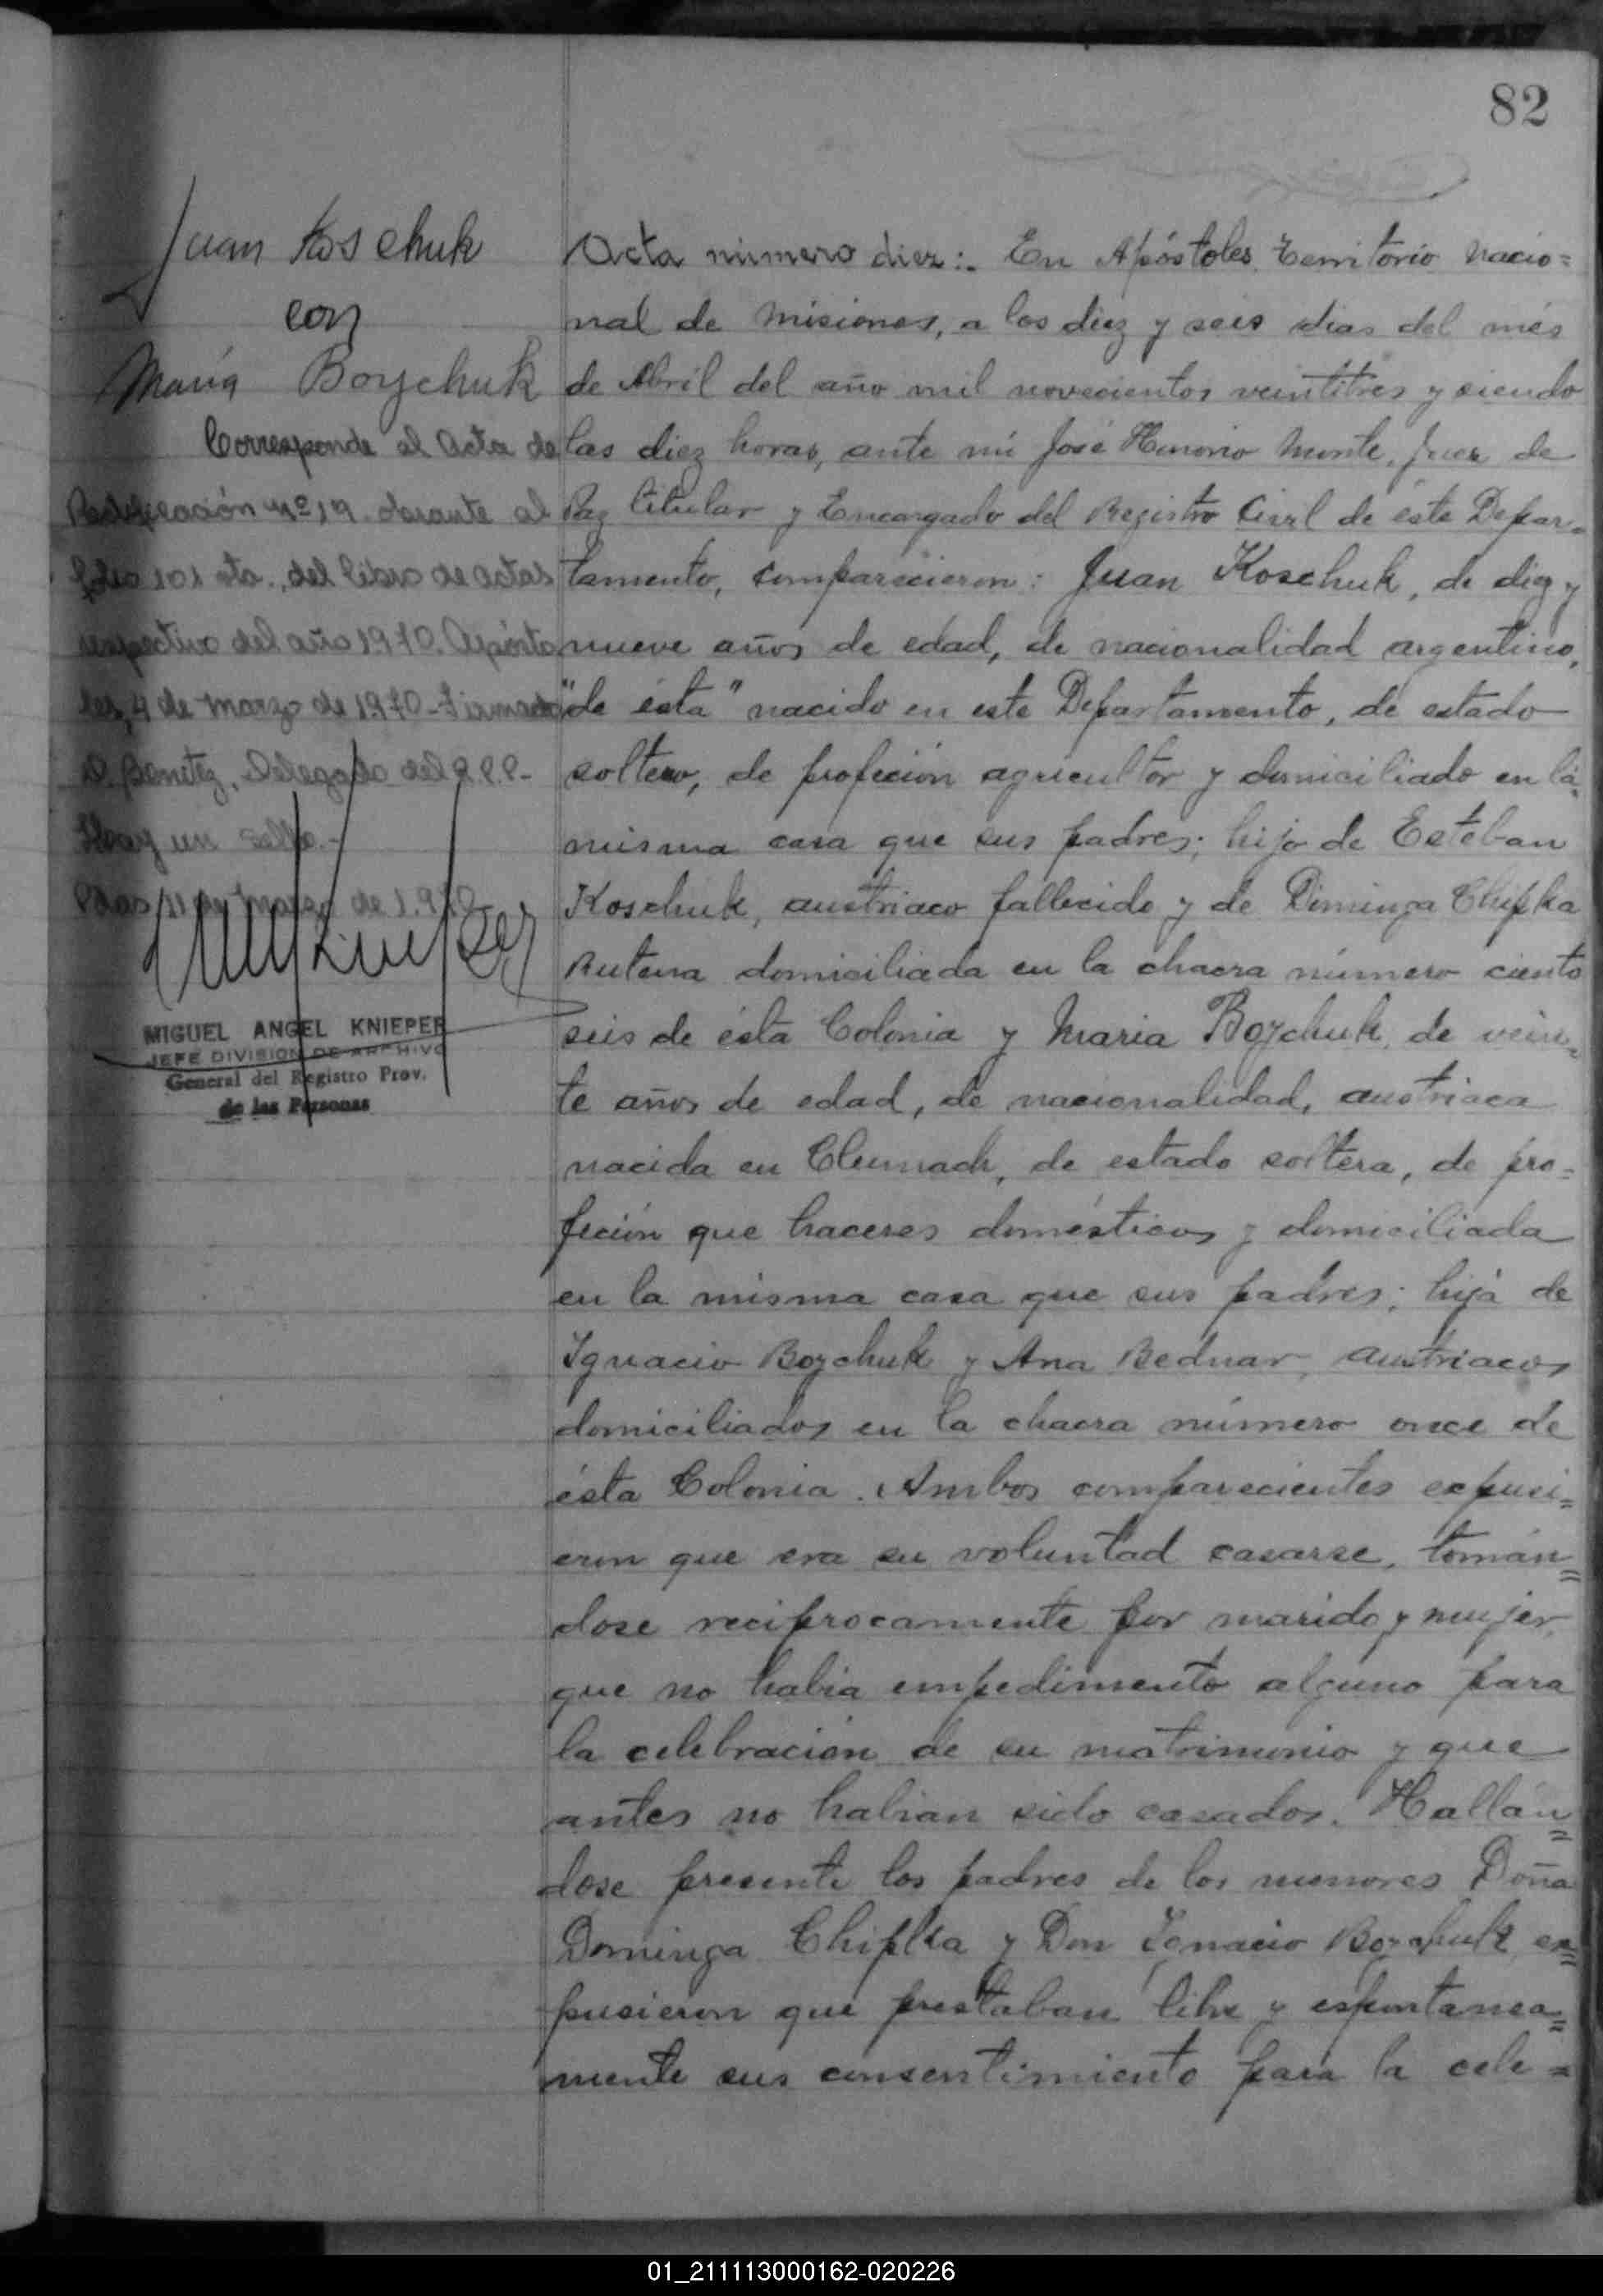 82
Juan Koschuk
con
María Boychuk
Corresponde al Acta de
Rectificación Nº 19. obrante al
folio 101 vto., del libro de actas
respectivo del año 1970. Apósto
les, 4 de Marzo de 1970 - Firmado
D. Benitez, Delegado del R.P.P.-
Hay un sello.-
Pdas, 11 de Marzo de 1.970
MIGUEL ANGEL KNIEPER
JEFE DIVISION DE ARCHIVO
General del Registro Prov.
de las Personas
Acta número diez:. En Apóstoles, Territorio Nacio=
nal de Misiones, a los diez y seis dias del més
de Abril del año mil novecientos veintitres y siendo
las diez horas, ante mi José Honorio Monte, Juez de
Paz titular y Encargado del Registro Civil de éste Depar=
tamento, comparecieron: Juan Koschuk, de diez y
nueve años de edad, de nacionalidad argentino,
"de ésta" nacido en este Departamento, de estado
soltero, de profeción agricultor y domiciliado en la
misma casa que sus padres; hijo de Esteban
Koschuk, austriaco fallecido y de Dominga Chipka
Rutena domiciliada en la chacra número ciento
seis de ésta Colonia y Maria Boychuk, de vein=
te años de edad, de nacionalidad, austriaca
nacida en Clumach, de estado soltera, de pro=
feción que haceres domésticos y domiciliada
en la misma casa que sus padres; hija de
Ignacio Boychuk y Ana Bednar, austriacos
domiciliados en la chacra número once de
ésta Colonia. Ambos comparecientes expusi=
eron que era su voluntad casarse, tomán=
dose reciprocamente por marido y mujer,
que no habia empedimento alguno para
la celebración de su matrimonio y que
antes no habian sido casados. Hallán=
dose presente los padres de los menores Doña
Dominga Chipka y Don Ignacio Boychuk, ex=
pusieron que prestaban libre y espontanea=
mente sus consentimiento para la cele=
01_211113000162-020226